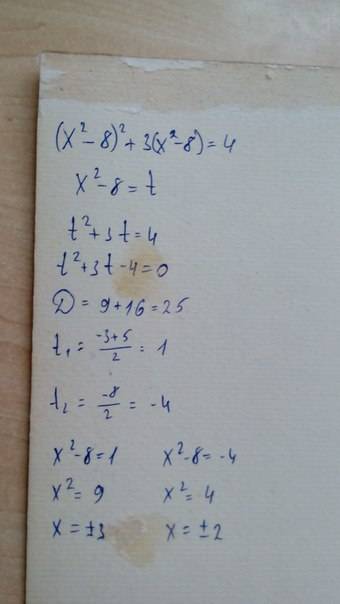 (x²-8)²+3(x²-8)=4
x²-8=t
t²+3t=4
t²+3t-4=0
D=9+16=25
t₁=(-3+5)/2=1
t₂=-8/2=-4
x²-8=1 x²-8=-4
x²=9 x²=4
x=±3 x=±2